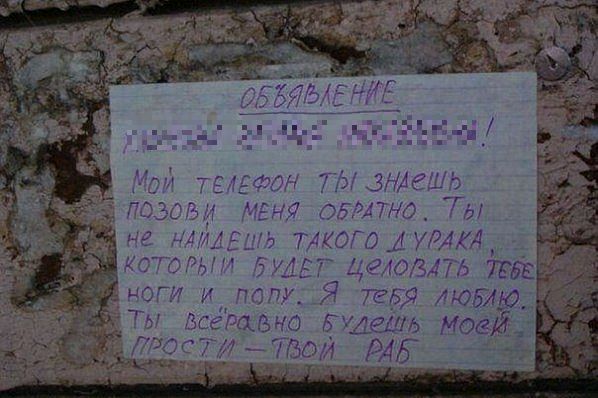 ОБЪЯВЛЕНИЕ
!
Мой ТЕЛЕФОН ТЫ ЗНАЕШЬ
ПОЗОВИ МЕНЯ ОБРАТНО. ТЫ
НЕ НАЙДЕШЬ ТАКОГО ДУРАКА,
КОТОРЫЙ БУДЕТ ЦЕЛОВАТЬ ТЕБЕ
НОГИ И ПОПУ. Я ТЕБЯ ЛЮБЛЮ.
ТЫ ВСЁРАВНО БУДЕШЬ МОЕЙ
ПРОСТИ — ТВОЙ РАБ